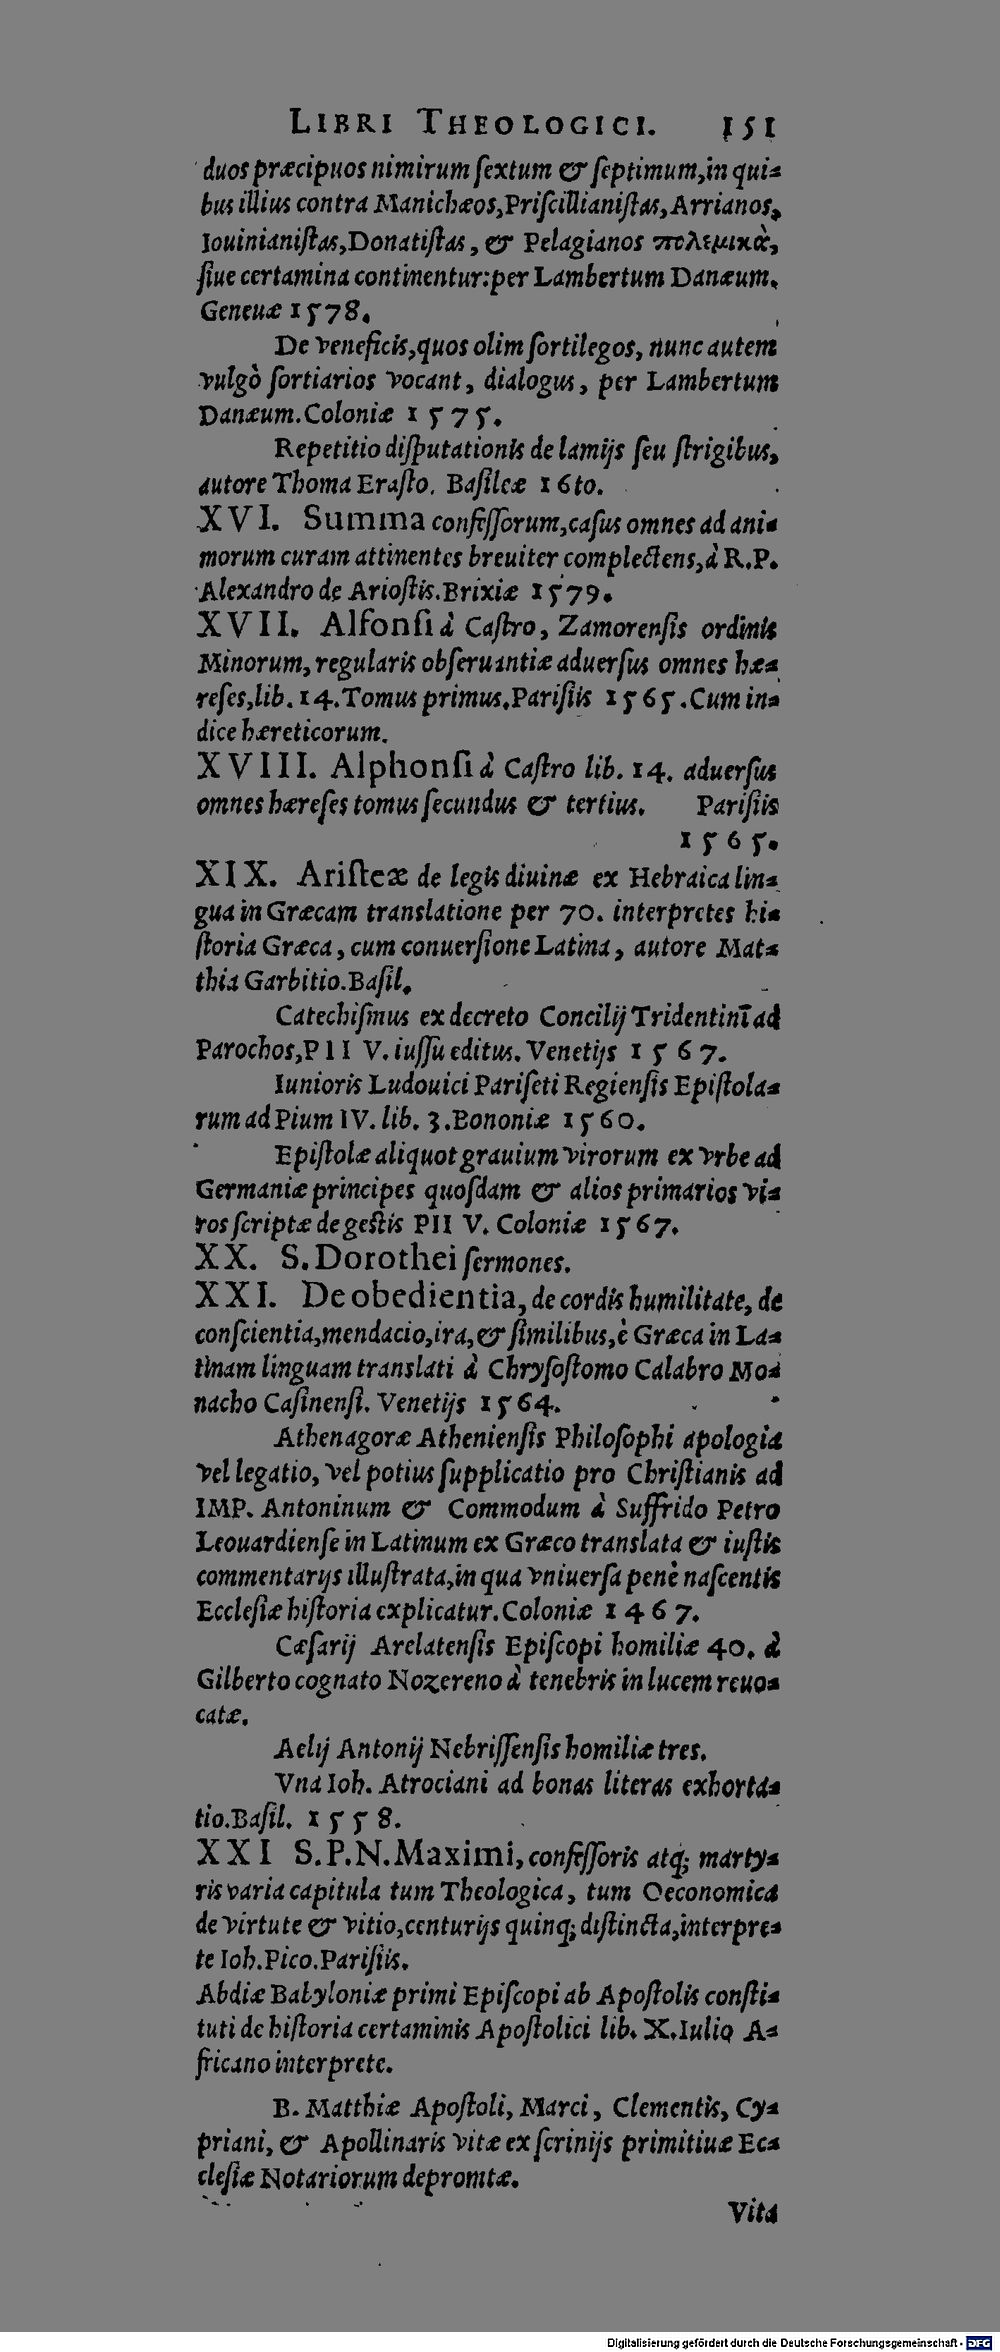 LIBRI THEOLOGICI. 151
duos præcipuos nimirum ſextum & ſeptimum, in qui-
bus illius contra Manichæos, Priſcillianiſtas, Arrianos,
Iouinianiſtas, Donatiſtas, & Pelagianos πολεμικὰ,
ſiue certamina continentur: per Lambertum Danæum.
Geneuæ 1578.
De veneficis, quos olim ſortilegos, nunc autem
vulgò ſortiarios vocant, dialogus, per Lambertum
Danæum. Coloniæ 1575.
Repetitio diſputationis de lamijs ſeu ſtrigibus,
autore Thoma Eraſto. Baſileæ 16to.
XVI. Summa confeſſorum, caſus omnes ad ani-
morum curam attinentes breuiter complectens, à R.P.
Alexandro de Arioſtis. Brixiæ 1579.
XVII. Alfonſi à Caſtro, Zamorenſis ordinis
Minorum, regularis obſeruantiæ aduerſus omnes hæ-
reſes, lib. 14. Tomus primus. Pariſiis 1565. Cum in-
dice hæreticorum.
XVIII. Alphonſi à Caſtro lib. 14. aduerſus
omnes hæreſes tomus ſecundus & tertius. Pariſiis
1565.
XIX. Ariſteæ de legis diuinæ ex Hebraica lin-
gua in Græcam translatione per 70. interpretes hi-
ſtoria Græca, cum conuerſione Latina, autore Mat-
thia Garbitio. Baſil.
Catechiſmus ex decreto Concilij Tridentinī ad
Parochos, PII V. iuſſu editus. Venetijs 1567.
Iunioris Ludouici Pariſeti Regienſis Epiſtola-
rum ad Pium IV. lib. 3. Bononiæ 1560.
Epiſtolæ aliquot grauium virorum ex vrbe ad
Germaniæ principes quoſdam & alios primarios vi-
ros ſcriptæ de geſtis PII V. Coloniæ 1567.
XX. S. Dorothei ſermones.
XXI. De obedientia, de cordis humilitate, de
conſcientia, mendacio, ira, & ſimilibus, è Græca in La-
tinam linguam translati à Chryſoſtomo Calabro Mo-
nacho Caſinenſi. Venetijs 1564.
Athenagoræ Athenienſis Philoſophi apologia
vel legatio, vel potius ſupplicatio pro Chriſtianis ad
IMP. Antoninum & Commodum à Suffrido Petro
Leouardienſe in Latinum ex Græco translata & iuſtis
commentarijs illuſtrata, in qua vniuerſa penè naſcentis
Eccleſiæ hiſtoria explicatur. Coloniæ 1467.
Cæſarij Arelatenſis Epiſcopi homiliæ 40. à
Gilberto cognato Nozereno à tenebris in lucem reuo-
catæ.
Aelij Antonij Nebriſſenſis homiliæ tres.
Vna Ioh. Atrociani ad bonas literas exhorta-
tio. Baſil. 1558.
XXI S.P.N. Maximi, confeſſoris atq; marty-
ris varia capitula tum Theologica, tum Oeconomica
de virtute & vitio, centurijs quinq; diſtincta, interpre-
te Ioh. Pico. Pariſiis.
Abdiæ Babyloniæ primi Epiſcopi ab Apoſtolis conſti-
tuti de hiſtoria certaminis Apoſtolici lib. X. Iulio A-
fricano interprete.
B. Matthiæ Apoſtoli, Marci, Clementis, Cy-
priani, & Apollinaris vitæ ex ſcrinijs primitiuæ Ec-
cleſiæ Notariorum depromtæ.
Vita
Digitalisierung gefördert durch die Deutsche Forschungsgemeinschaft - DFG